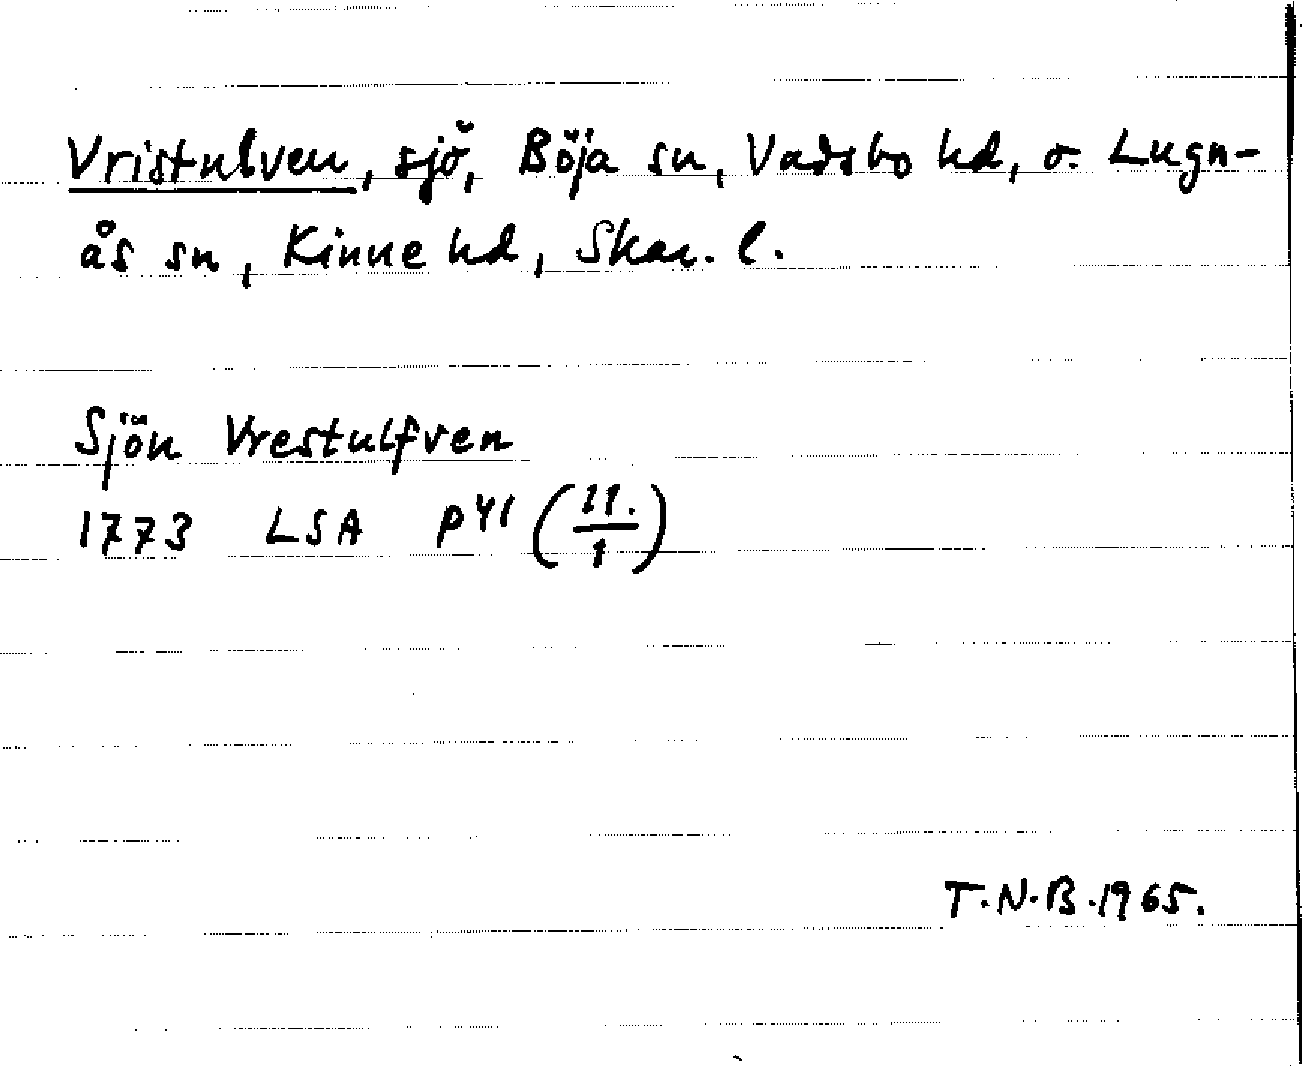 Vristulven, sjö, Böja sn, Vadsbo hd, o. Lugn-
ås sn, Kinne hd, Skar. l.
Sjön Vrestulfven
1773 LSA P41 (11./1)
T.N.B.1965.